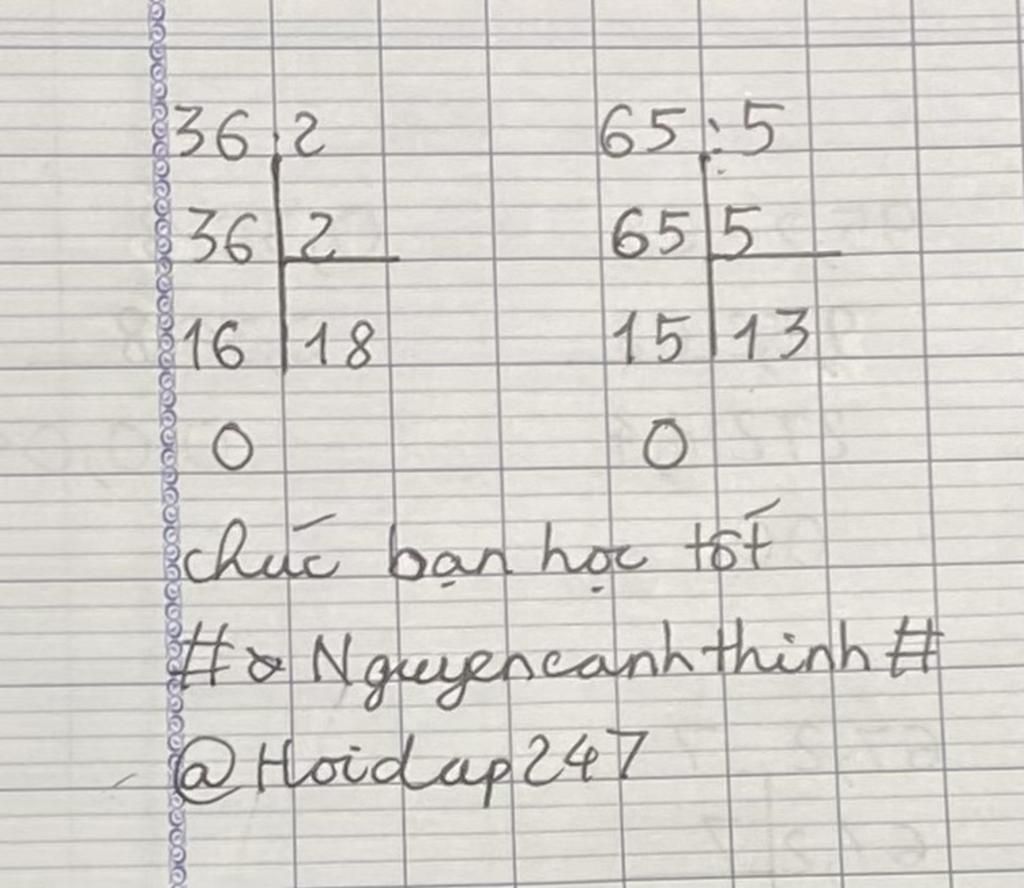 36 : 2 65 : 5
36 2 65 5
16 18 15 13
0 0
chúc bạn học tốt
# Nguyencanhthinh #
@Hoidap247